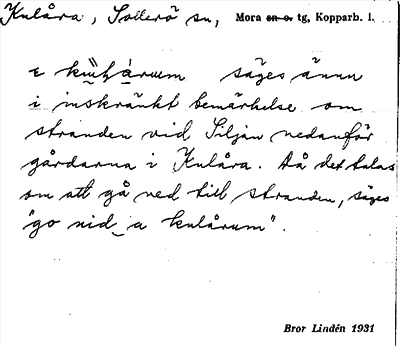 Kulåra, Sollerö sn, Mora sn o. tg, Kopparb. l.
säges ännu
i inskränkt bemärkelse om
stranden vid Siljan nedanför
gårdarna i Kulåra. Då det talas
om att gå ned till stranden, säges
"go nid_a kulårum".
Bror Lindén 1931